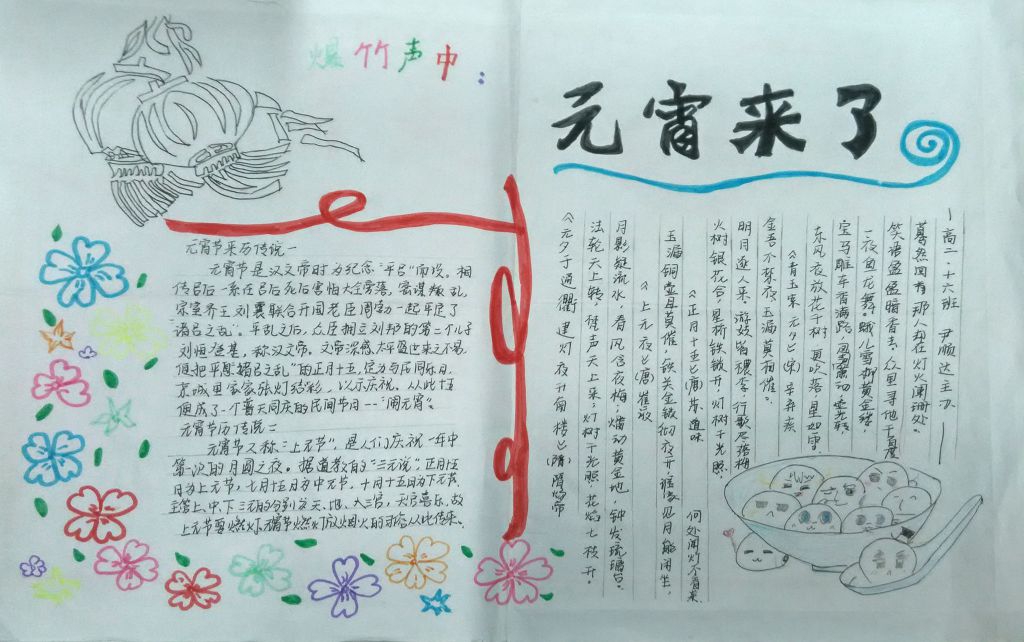 爆竹声中:
元宵来了
元宵节来历传说一
元宵节是汉文帝时为纪念"平吕"而设。相
传吕后一系在吕后死后害怕大全旁落,密谋叛乱,
宗室齐王刘襄联合开国老臣周勃一起平定了
诸吕之乱"。平乱之后,众臣拥立刘邦的第二个儿子
刘恒登基,称汉文帝。文帝深感太平盛世来之不易
便把平息"诸吕之乱"的正月十五,定为与民同乐日,
京城里家家张灯结彩,以示庆祝。从此十五
便成了一个普天同庆的民间节日--"闹元宵"。
元宵节历传说二
元宵节又称"上元节",是人们庆祝一年中
第一次的月圆之夜。据道教的"三元说",正月十五
日为上元节,七月十五为中元节,十月十五日为下元节,
主管上,中,下三元的分别为天、地、人三官,天官喜乐,故
上元节要燃灯。元宵节燃灯放烟火的习俗从此传来。
《元夕于通衢建灯夜升南楼》(隋)隋炀帝
法轮天上转,梵声天上来;灯树千光照,花焰七枝开。
月影凝流水,春风含夜梅;燔动黄金地,钟发琉璃台。
《上元夜》(唐)崔液
玉漏铜壶且莫催,铁关金锁彻夜开;谁家见月能闲坐,
何处闻灯不看来.
《正月十五》(唐)苏道味
火树银花合,星桥铁锁开;灯树千光照.
明月逐人来;游妓皆秾李,行歌尽落梅
金吾不禁夜,玉漏莫相催。
《青玉案·元夕》(宋)辛弃疾
东风夜放花千树,更吹落星如雨。
宝马雕车香满路,凤箫声动壶光转,
一夜鱼龙舞。蛾儿雪柳黄金缕,
笑语盈盈暗香去,众里寻他千百度
蓦然回首那人却在灯火阑珊处。
—高二·十六班 尹顺达主办——